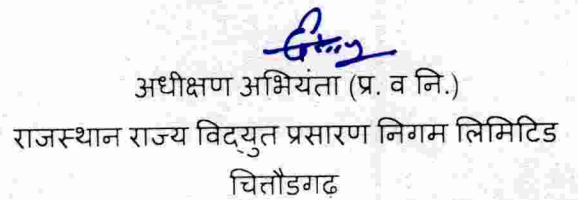 अधीक्षण अभियंता (प्र. व नि.)
राजस्थान राज्य विद्युत प्रसारण निगम लिमिटिड
चित्तौडगढ़